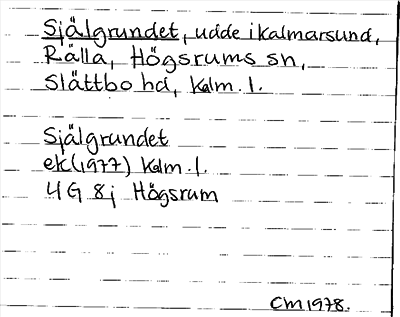 Själgrundet, udde i Kalmarsund,
Rälla, Högsrums sn,
Slättbo hd, Kalm. l.
Själgrundet
ek (1977) Kalm. l.
4 G 8 j Högsrum
CM 1978.